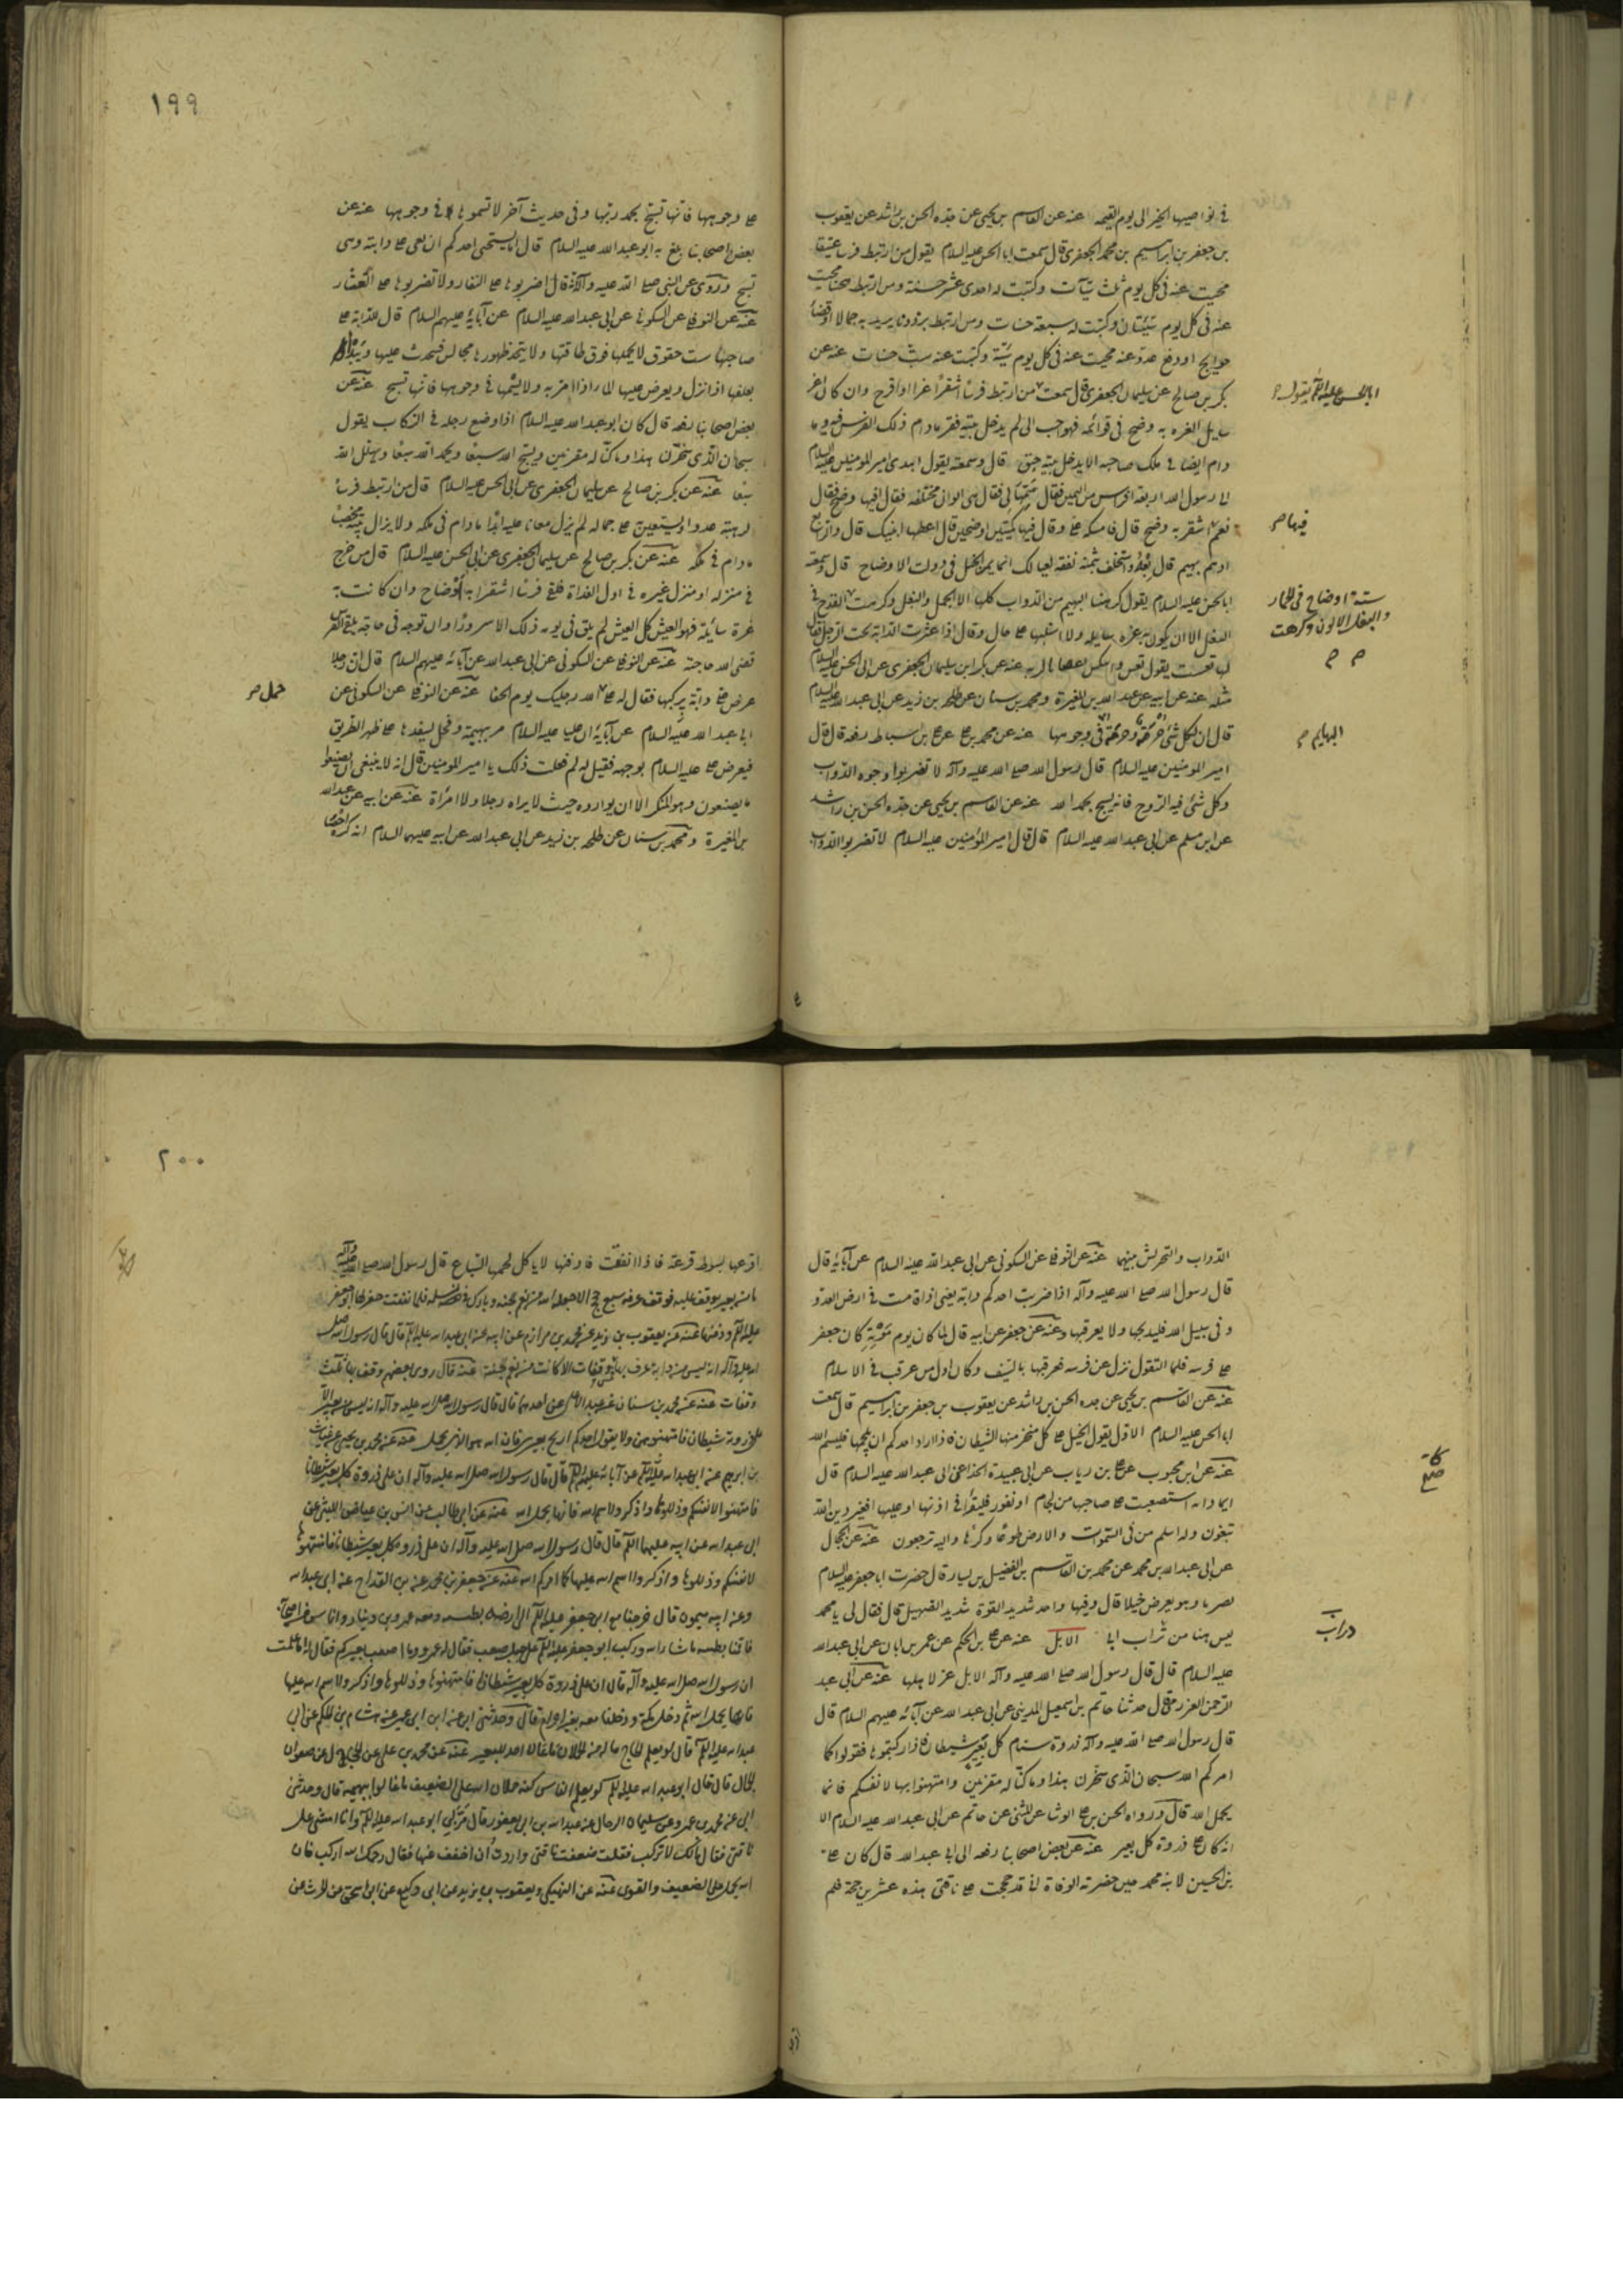 في نواصيها الخير الى يوم القيمه عنه عن القاسم بن يحيى عن جده الحسن بن راشد عن يعقوب
بن جعفر بن ابراهيم بن محمد الجعفري قال سمعت ابا الحسن عليه السلام يقول من ارتبط فرسا عتيقا
محيت عنه في كل يوم ثلث سيآت وكتبت له احدى عشر حسنة ومن ارتبط هجينا محيت
عنه في كل يوم سيئتان وكتبت له سبعة حسنات ومن ارتبط برذونا يريد به جمالا او قضاء
حوايج او دفع عدو عنه محيت عنه في كل يوم سيئة وكتبت عنه ست حسنات عنه عن
بكر بن صالح عن سليمان الجعفري قال سمعت من ارتبط فرسا اشقرا غرا او اقرح وان كان اغر
ابا الحسن عليه السلام يقول
سايل الغره به وضح في قوائمه فهو احب الى لم يدخل بيته فقر مادام ذلك الفرس فيه وما
دام ايضا في ملك صاحبه لا يدخل بيته حيق قال وسمعته يقول اهدى امير المؤمنين عليه السلام
الى رسول الله اربعة افراس من اليمن فقال سمها لي فقال هي الوان مختلفه فقال افيها وضح فقال
نعم اشقر به وضح قال فامسكه علي وقال فيها كميتين اوضحين قال اعطهما ابنيك قال والرابع
فيها
ادهم بهيم قال بعه واستخلف بثمنه نفقه لعيالك انما يمن الخيل في ذوات الاوضاح قال وسمعت
ابا الحسن عليه السلام يقول كرهنا البهيم من الدواب كلها الا الجمل والبغل وكرهت القرح في
شية اوضاح في الحمار
والبغل الالون وكرهت
البغل الا ان يكون به غره سايله ولا اشتهيها على حال وقال اذا عثرت الدابة تحت الرجل فقال
لها تعست يقول تعس وانتكس اعصانا لربه عنه عن بكر ابن سليمان الجعفري عن ابي الحسن عليه السلام
مثله عنه عن ابيه عن عبد الله بن المغيرة ومحمد بن سنان عن طلحه بن زيد عن ابي عبد الله عليه السلام
قال ان لكل شئ حرمة وحرمة في وجوهها عنه عن محمد بن علي عن علي بن اسباط رفعه قال قال
البهايم
امير المومنين عليه السلام قال رسول الله صلى الله عليه وآله لا تضربوا وجوه الدواب
وكل شئ فيه الروح فانه يسبح بحمد الله عنه عن القاسم بن يحيى عن جده الحسن بن راشد
عن ابن مسلم عن ابي عبد الله عليه السلام قال قال امير المؤمنين عليه السلام لا تضربوا الدواب
١٩٩
على وجوهها فانها تسبح بحمد ربها وفي حديث آخر لا تسموها في وجوهها عنه عن
بعض اصحابنا بلغ به ابو عبد الله عليه السلام قال اما يستحيى احدكم ان يغني على دابته وهى
تسبح وروى عن النبي صلى الله عليه وآله انه قال اضربوها على النفار ولا تضربوها على العثار
عنه عن النوفلي عن السكوني عن ابي عبد الله عليه السلام عن آبائه عليهم السلام قال للدابة على
صاحبها ست حقوق لا يحملها فوق طاقتها ولا يتخذ ظهورها مجالس فيحدث عليها ويبدا
بعلفها اذا نزل ويعرض عليها الماء اذا مر به ولا يسمها في وجوهها فانها تسبح عنه عن
بعض اصحابنا رفعه قال كان ابو عبد الله عليه السلام اذا وضع رجله في الركاب يقول
سبحان الذي سخر لنا هذا وما كنا له مقرنين ويسبح الله سبعا ويحمد الله سبعا ويهلل الله
سبعا عنه عن بكر بن صالح عن سليمان الجعفري عن ابي الحسن عليه السلام قال من ارتبط فرسا
لرهبة عدو او يستعين على جماله لم يزل معانا عليه ابدا مادام في ملكه ولا يزال بيته مخصبا
مادام في ملكه عنه عن بكر بن صالح عن سليمان الجعفري عن ابي الحسن عليه السلام قال من خرج
في منزله او منزل غيره في اول الغداة فلقى فرسا اشقرا به اوضاح وان كانت به
غرة سائلة فهو العيش كل العيش لم يلق في يومه ذلك الا سرورا وان توجه في حاجة فلقى الفرس
قضى الله حاجته عنه عن النوفلي عن السكوني عن ابي عبد الله عن آبائه عليهم السلام قال ان رجلا
عرض دابة يركبها فقال له على الله رجليك يوم عنه عن النوفلي عن السكوني عن
حمل
ابي عبد الله عليه السلام عن آبائه ان عليا عليه السلام مر ببهيمة وفحل يسفدها على ظهر الطريق
فيعرض علي عليه السلام بوجهه فقيل له لم فعلت ذلك يا امير المومنين قال انه لا ينبغي ان يصنعوا
ما يصنعون وهو المنكر الا ان يواروه حيث لا يراه رجل ولا امرأة عنه عن ابيه عن عبد الله
بن المغيرة ومحمد بن سنان عن طلحه بن زيد عن ابي عبد الله عن ابيه عليهما السلام انه كره اخصاء
الدواب والتحريش بينها عنه عن النوفلي عن السكوني عن ابي عبد الله عليه السلام عن آبائه قال
قال رسول الله صلى الله عليه وآله اذا ضربت احدكم دابة يعنى اذا قامت في ارض العدو
وفي سبيل الله فليذبحها ولا يعرقبها وعنه عن جعفر عن ابيه قال لما كان يوم موتة كان جعفر
على فرسه فلما التقوا نزل عن فرسه فعرقبها بالسيف وكان اول من عرقب في الاسلام
عنه عن القاسم بن يحيى عن جده الحسن بن راشد عن يعقوب بن جعفر بن ابراهيم قال سمعت
ابا الحسن عليه السلام الاول يقول الخيل على كل منخر منها الشيطان فاذا اراد احدكم ان يلجمها فليسم الله
عنه عن ابن محبوب عن علي بن رياب عن ابي عبيدة الحذا عن ابي عبد الله عليه السلام قال
ايما دابة استصعبت على صاحبها من لجام او نفور فليقرأ في اذنها او عليها افغير دين الله
تبغون وله اسلم من في السموات والارض طوعا وكرها واليه ترجعون عنه عن
عن ابي عبد الله بن محمد عن محمد بن القاسم بن الفضيل بن يسار قال حضرت ابا جعفر عليه السلام
بصريا وهو يعرض خيلا قال وفيها واحد شديد القوة شديد الصهيل قال فقال لي يا محمد
ليس هنا من ثراب ابي الابل عنه عن علي بن الحكم عن عمر بن ابان عن ابي عبد الله
دواب
عليه السلام قال قال رسول الله صلى الله عليه وآله الابل عز لاهلها عنه عن ابي عبد
الرحمن العزرمي قال حدثنا حاتم بن اسمعيل المديني عن ابي عبد الله عن آبائه عليهم السلام قال
قال رسول الله صلى الله عليه وآله ذروة سنام كل بعير شيطان فاذا ركبتموها فقولوا كما
امركم الله سبحان الذي سخر لنا هذا وما كنا له مقرنين وامتهنوا بها لانفسكم فانما
يحمل الله قال ورواه الحسن بن علي الوشا عن المثنى عن حاتم عن ابي عبد الله عليه السلام الا
انه كان على ذروة كل بعير عنه عن بعض اصحابنا رفعه الى ابي عبد الله قال كان علي
بن الحسين لابنه محمد حين حضرته الوفاة اني قد حججت على ناقتي هذه عشرين حجة فلم
٢٠٠
اقرعها بسوط قرعة فاذا نفقت فادفنها لا ياكل لحمها السباع قال رسول الله صلى الله عليه وآله
ما من بعير يوقف عليه موقف عرفه سبع حجج الا جعله الله من نعم الجنة وبارك في نسله فلما نفقت حفر لها ابو جعفر
عليه السلام ودفنها عنه عن يعقوب بن يزيد عن محمد بن مرازم عن ابيه عن ابي عبد الله عليه السلام قال قال رسول الله صلى
الله عليه وآله انه ليس من دابة عرف بها خمس وقفات الا كانت من نعم الجنة عنه قال روى بعضهم وقف بها ثلث
وقفات عنه عن محمد بن سنان عن عبد الاعلى عن احدهما قال قال رسول الله صلى الله عليه وآله انه ليس من بعير الا
على ذروته شيطان فامتهنوهن ولا يقول احدكم اريح بعيري فان الله هو الذي يحمل عنه عن محمد بن يحيى عن غياث
بن ابرهيم عن ابي عبد الله عليه السلام عن آبائه عليهم السلام قال قال رسول الله صلى الله عليه وآله ان على ذروة كل بعير شيطانا
فامتهنوا لانفسكم وذللوها واذكروا اسم الله فانما يحمل الله عنه عن ابي طالب عن انس بن عياض الليثي عن
ابي عبد الله عن ابيه عليهما السلام قال قال رسول الله صلى الله عليه وآله ان على ذروة كل بعير شيطانا فامتهنوها
لانفسكم وذللوها واذكروا اسم الله عليها كما امركم الله عنه عن جعفر بن محمد عن بن القداح عن ابي عبد الله
وعن ابيه ميمون قال خرجنا مع ابي جعفر عليه السلام الى ارض بطيبه ومعه عمرو بن دينار واناس من اصحابه
فاقمنا بطيبه ما شاء الله وركب ابو جعفر عليه السلام على جمل صعب فقال له عمرو ما اصعب بعيركم فقال اما علمت
ان رسول الله صلى الله عليه وآله قال ان على ذروة كل بعير شيطانا فامتهنوها وذللوها واذكروا اسم الله عليها
فانما يحمل الله ثم دخل مكة ودخلنا معه بغير احرام قال وحدثني ابي عن ابن ابي عمير عن هشام بن الحكم عن ابي
عبد الله عليه السلام قال لو يعلم الحاج ما له من الحملان ما غالا احد لبعير عنه عن محمد بن علي عن الحجال عن صفوان
الجمال قال قال ابو عبد الله عليه السلام لو يعلم الناس كنه حملان الله على الضعيف ما غالوا ببهيمة قال وحدثني
ابي عن محمد بن عمرو عن سليمان الرحال عن عبد الله بن ابي يعفور قال مر بي ابو عبد الله عليه السلام وانا امشي على
ناقتي فقال مالك لا تركب فقلت ضعفت ناقتي واردت ان اخفف عنها فقال رحمك الله اركب فان
الله يحمل على الضعيف والقوى عنه عن النهيكي ويعقوب بن يزيد عن ابي وكيع عن ابي اسحق عن الحارث عن